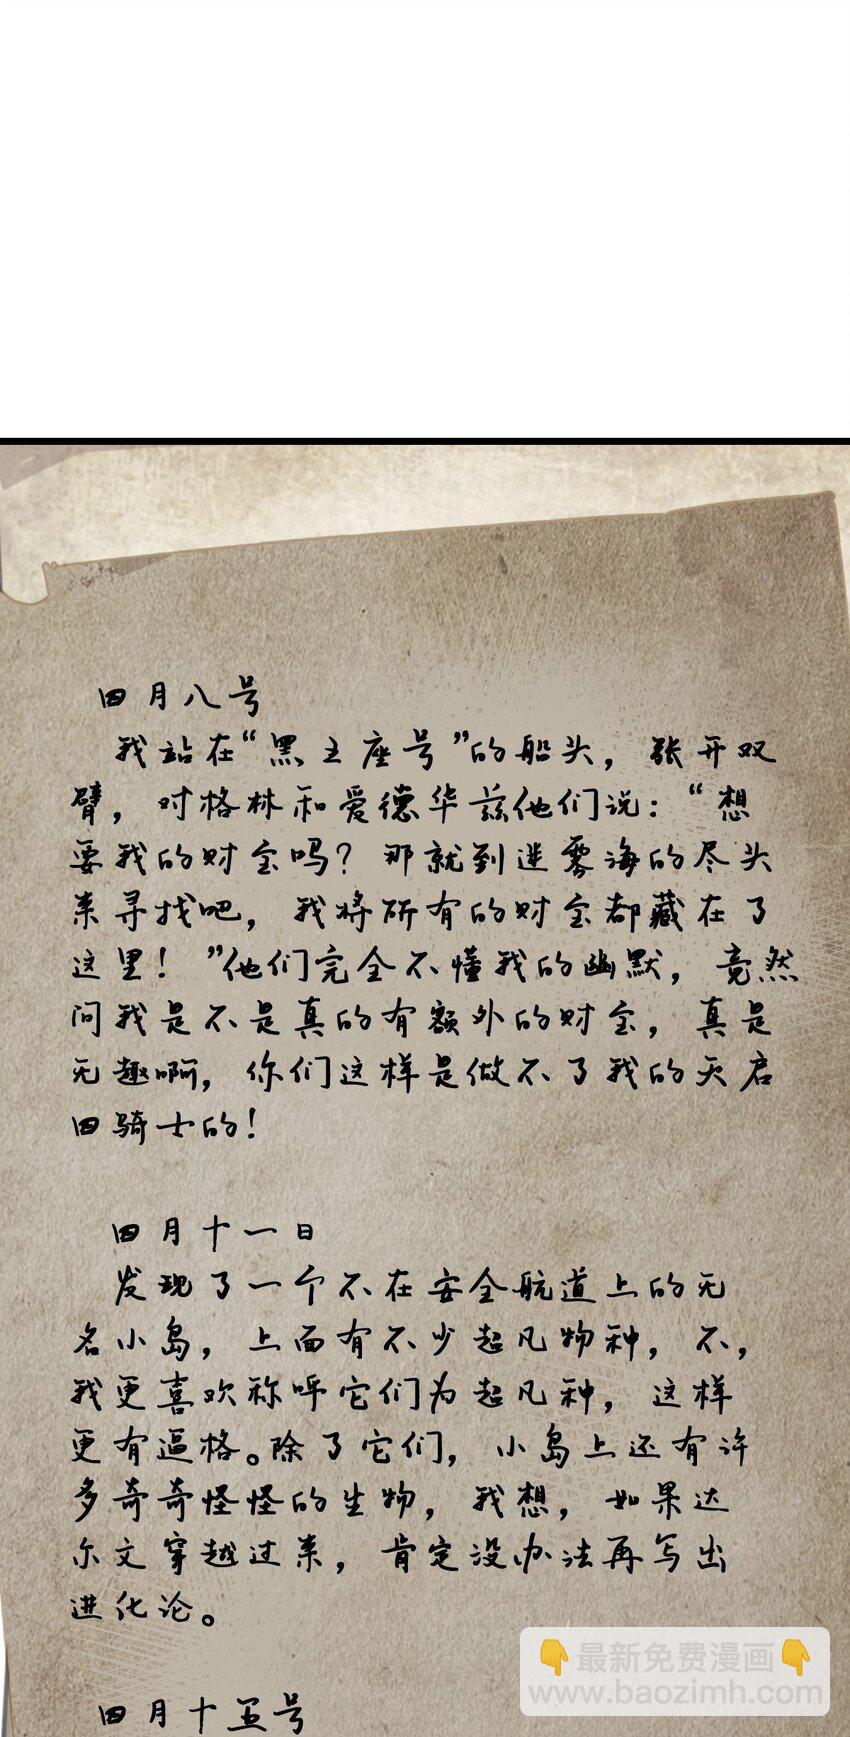 四月八号
我站在“黑王座号”的船头，张开双
臂，对格林和爱德华兹他们说：“想
要我的财宝吗？那就到迷雾海的尽头
来寻找吧，我将所有的财宝都藏在了
这里！”他们完全不懂我的幽默，竟然
问我是不是真的有额外的财宝，真是
无趣啊，你们这样是做不了我的天启
四骑士的！
四月十一日
发现了一个不在安全航道上的无
名小岛，上面有不少超凡物种，不，
我更喜欢称呼它们为超凡种，这样
更有逼格。除了它们，小岛上还有许
多奇奇怪怪的生物，我想，如果达
尔文穿越过来，肯定没办法再写出
进化论。
👇最新免费漫画👇
www.baozimh.com
四月十五号